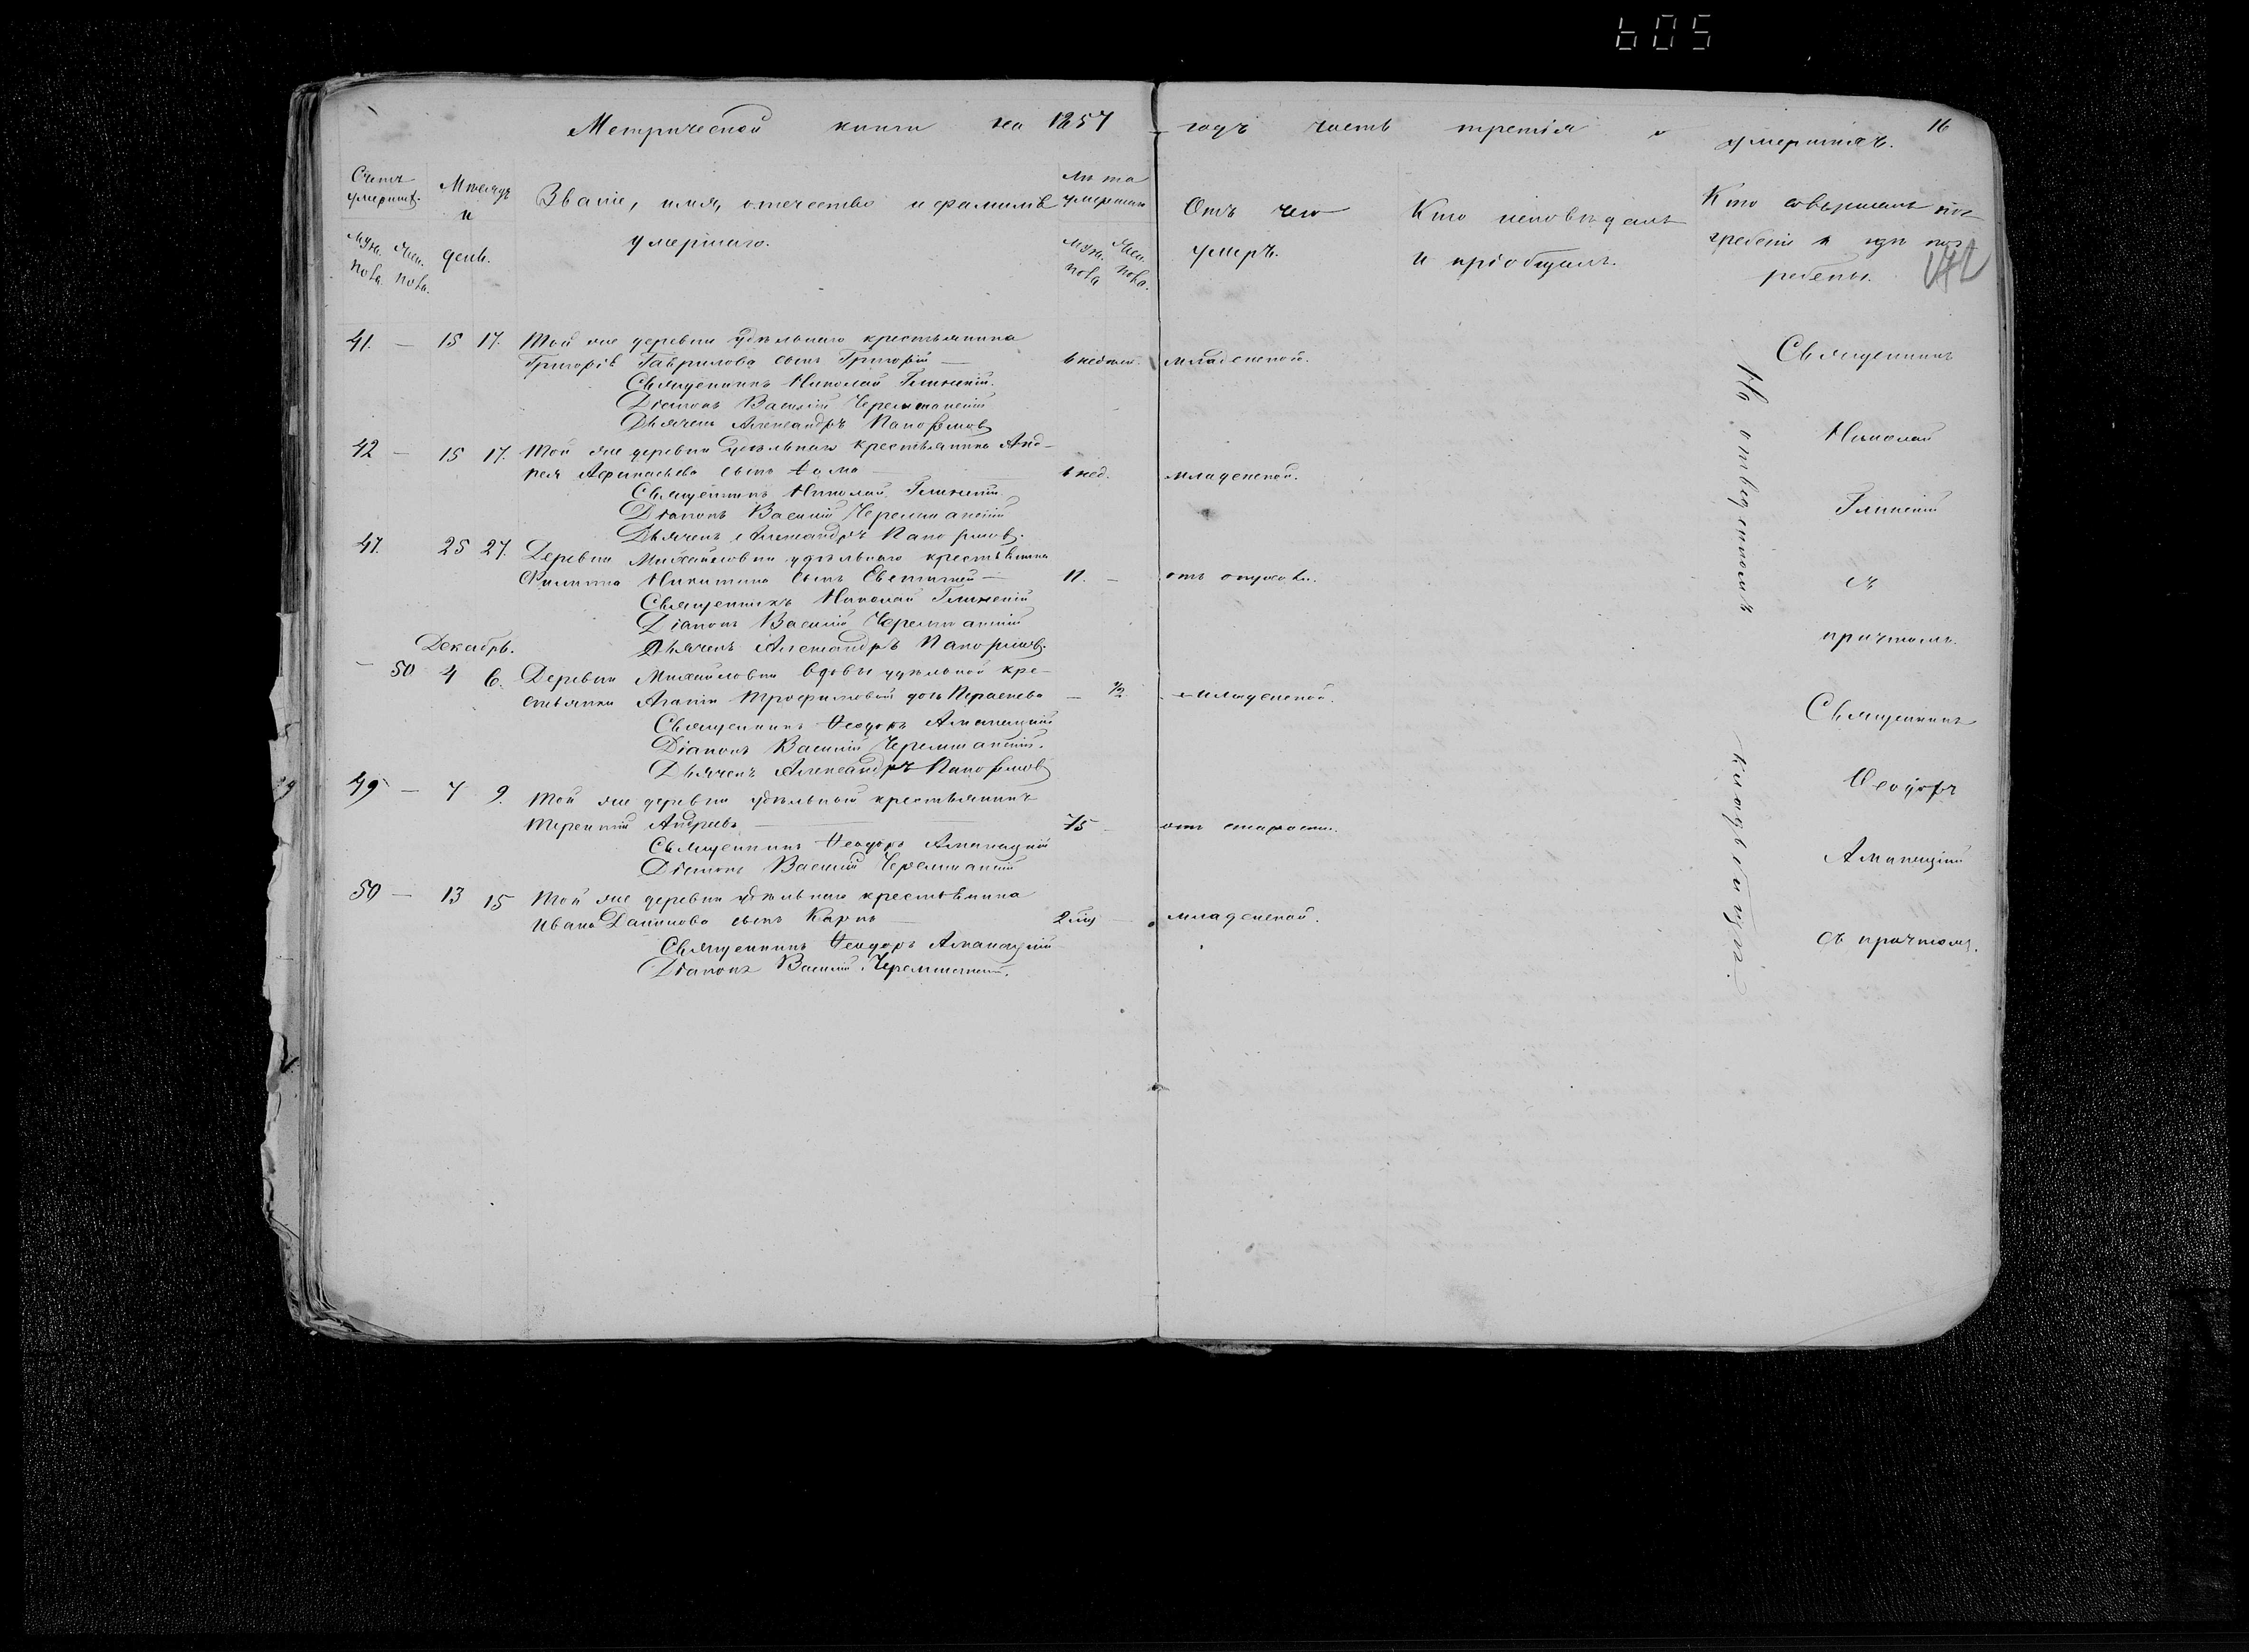 605
Метрической книги на 1857 годъ часть третія о умершихъ.
16
Счетъ умершихъ.
Муж. пола. Жен. пола.
Мѣсяцъ и день.
Званіе, имя, отчество и фамилія умершаго.
Лѣта умершаго
Муж. пола Жен. пола.
Отъ чего умеръ.
Кто исповѣдалъ и пріобщалъ.
Кто совершалъ погребеніе и гдѣ погребены.
41. — 15 17. Той же деревни удѣльнаго крестьянина
Григорія Гаврилова сынъ Григорій — 1 недѣли. младенской.
Священникъ Николай Глинскій.
Діаконъ Василій Черемшанскій
Дьячекъ Александръ
42 — 15 17. Той же деревни удѣльнаго крестьянина Анд-
рея Афанасьева сынъ Ѳома — 1 нед. младенской.
Священникъ Николай Глинскій
Діаконъ Василій Черемшанскій
Дьячекъ Александръ
47. 25 27. Деревни Михайловки удѣльнаго крестьянина
Филиппа Никитина сынъ Евстигней — 11. — отъ опухоли.
Священникъ Николай Глинскій
Діаконъ Василій Черемшанскій
Дьячекъ Александръ
Декабрь.
— 50 4 6. Деревни Михайловки вдовы удѣльной кре-
стьянки Агапіи Трофимовой дочь — ½ младенской.
Священникъ Ѳеодоръ Аманацкій
Діаконъ Василій Черемшанскій.
Дьячекъ Александръ
49 — 7 9. Той же деревни удѣльный крестьянинъ
Терентій Андреевъ — 75 — отъ старости.
Священникъ Ѳеодоръ Аманацкій
Діаконъ Василій Черемшанскій
50 — 13 15 Той же деревни удѣльнаго крестьянина
Ивана Данилова сынъ Карпъ — младенской.
Священникъ Ѳеодоръ Аманацкій
Діаконъ Василій Черемшанскій.
На отведенномъ кладбищѣ.
Священникъ
Николай
Глинскій
съ
причтомъ.
Священникъ
Ѳеодоръ
Аманацкій
съ причтомъ.